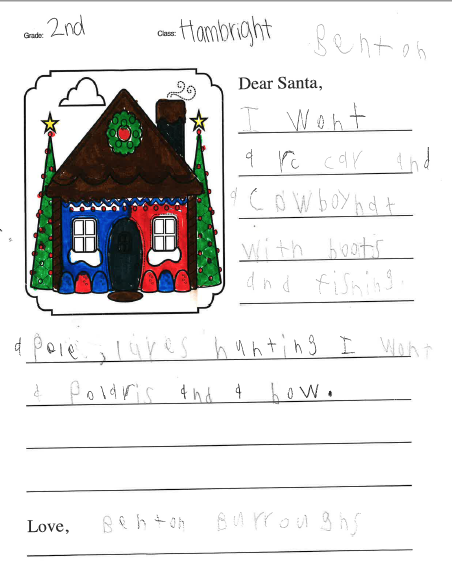 Grade: 2nd Class: Hambright
Benton
Dear Santa,
I Wont
a rc car and
a cowboyhat
with boots
and fishing.
a Pole, lures hunting I wont
a Polaris and a bow.
Love, Benton Burroughs